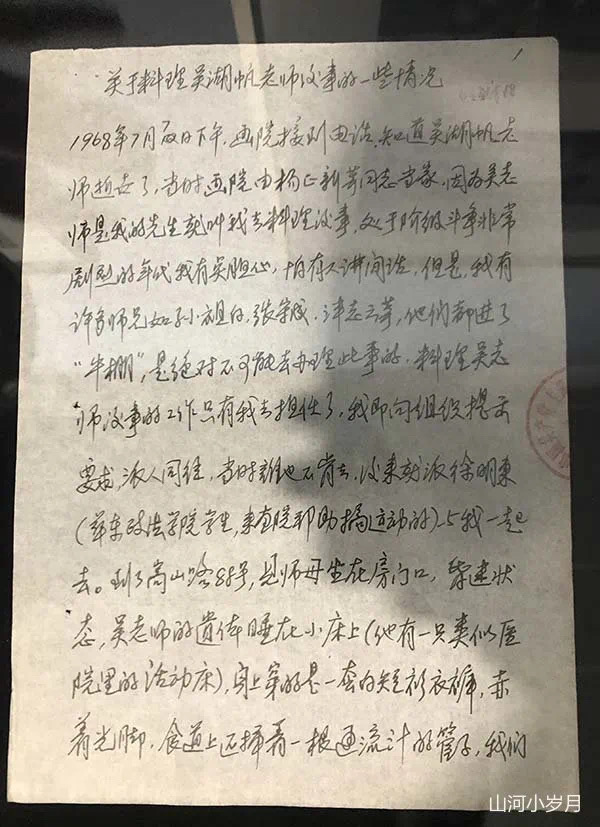 1
关于料理吴湖帆老师没事的一些情况
1968年7月 日下午，画院接到电话，知道吴湖帆老
师逝去了，当时画院由杨正新等同志当家，因为吴老
师是我的先生就叫我去料理没事，处于阶级斗争非常
剧烈的年代我有矣胆心，怕有人讲闲话，但是，我有
许多师兄如孙祖白、张守成、 等，他们都进了
“牛棚”，是绝对不可能去办理此事的，料理吴老
师没事的工作只有我去担任了，我即向组织提示
要求，派人同往，当时谁也不肯去，没来就派徐明东
（华东政法学院学生，来画院帮助搞运动的）与我一起
去。到了嵩山路88号，见师母坐在房门口，昏迷状
态，吴老师的遗体睡在小床上（他有一只类似医
院里的活动床），身上穿的是一套白短衫衣裤，赤
着光脚，食道上还插着一根通流汁的管子，我们
山河小岁月